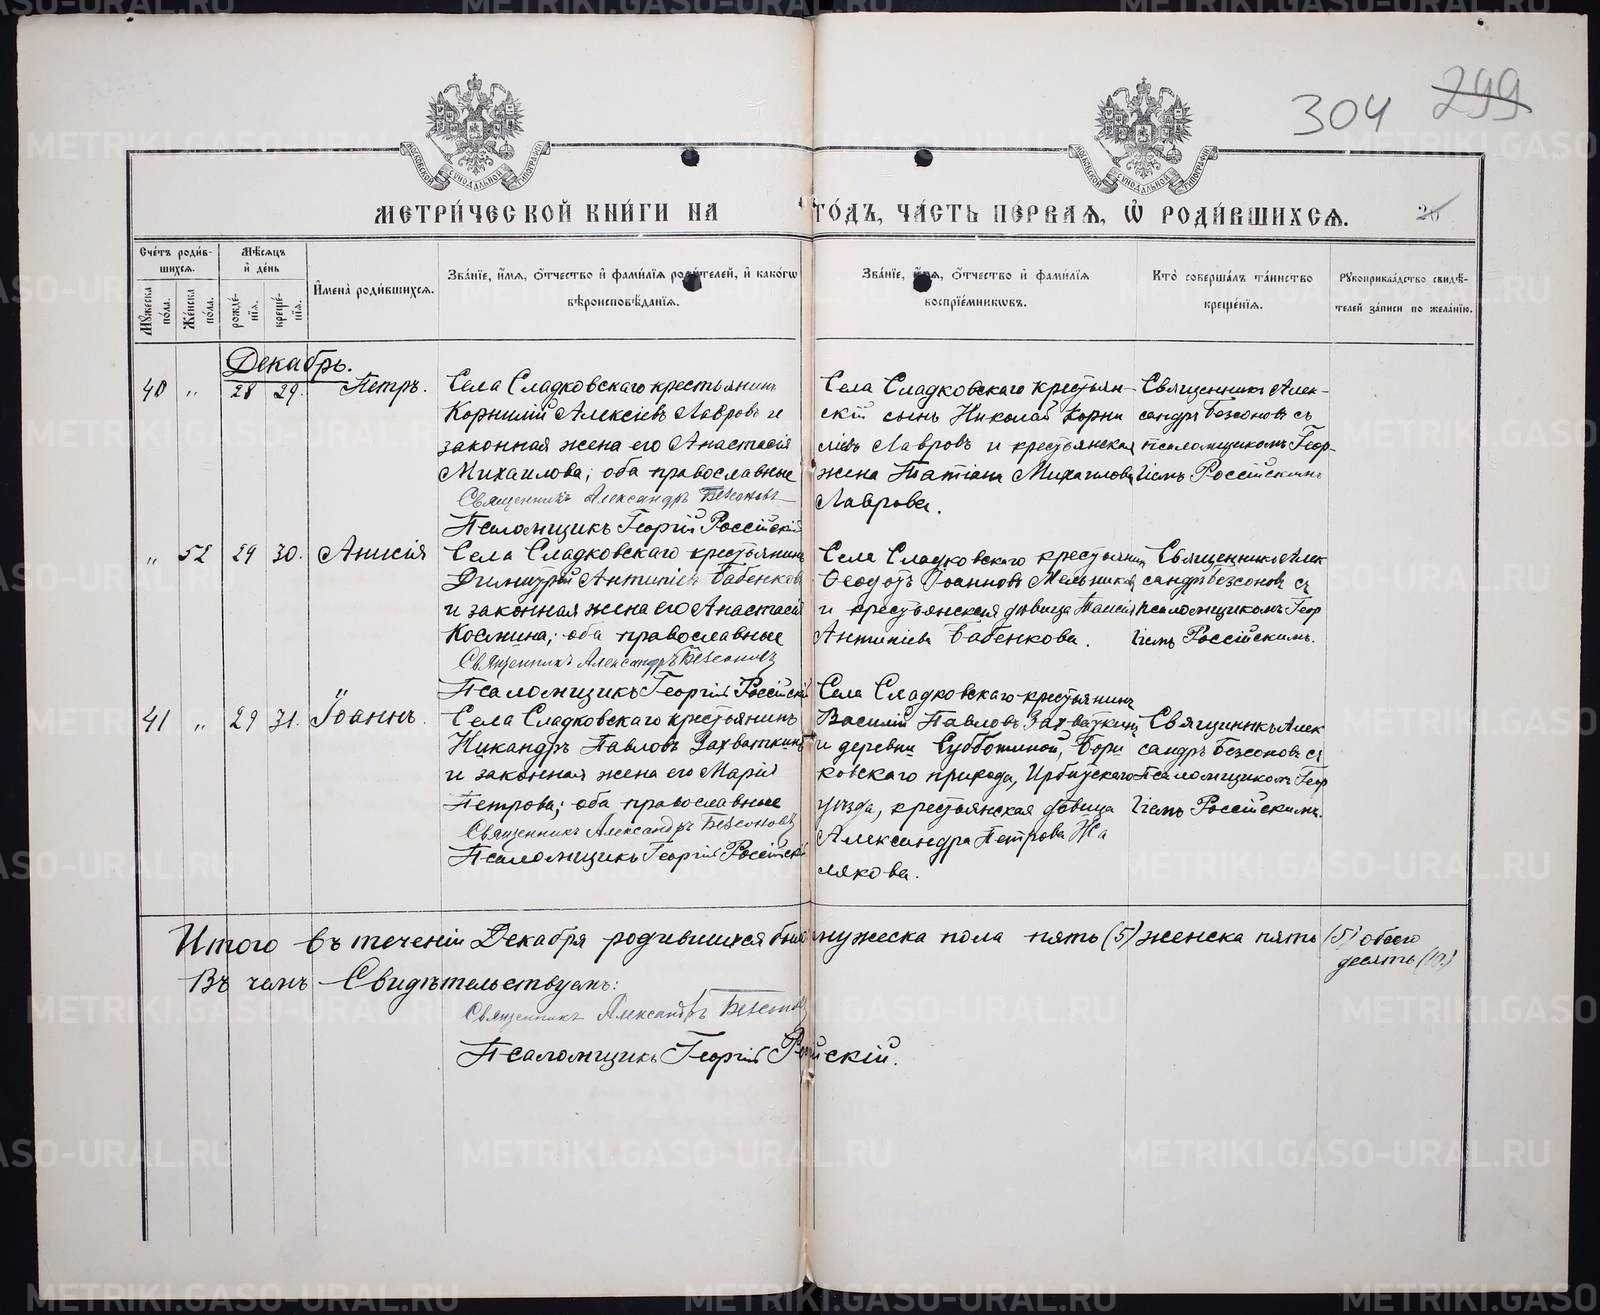 304 299
МЕТРИЧЕСКОЙ КНИГИ НА ГОДЪ, ЧАСТЬ ПЕРВАЯ, Ѡ РОДИВШИХСЯ. 26
Счетъ родив-
шихся.
Мужеска пола.
Женска пола.
Мѣсяцъ
и день
рожде-
нія.
креще-
нія.
Имена родившихся.
Званіе, имя, отчество и фамилія родителей, и какогѡ
вѣроисповѣданія.
Званіе, имя, отчество и фамилія
воспріемниковъ.
Кто совершалъ таинство
крещенія.
Рукоприкладство свидѣ-
телей записи по желанію.
Декабрь.
40 " 28 29. Петръ.
Села Сладковскаго крестьянинъ
Корнилій Алексіевъ Лавровъ и
законная жена его Анастасія
Михаилова; оба православные
Священникъ Александръ Безсоновъ
Псаломщикъ Георгій Россійскій
Села Сладковскаго крестьян-
скій сынъ Николай Корни
ліевъ Лавровъ и крестьянская
жена Татіана Михаилова
Лаврова.
Священникъ Алек-
сандръ Безсоновъ съ
псаломщикомъ Геор-
гіемъ Россійскимъ
" 52 29 30. Анисія
Села Сладковскаго крестьянинъ
Димитрій Антипіевъ Бабенковъ
и законная жена его Анастасія
Космина; оба православные
Священникъ Александръ Безсоновъ
Псаломщикъ Георгій Россійскій
Села Сладковскаго крестьянинъ
Ѳеодотъ Іоанновъ Мельниковъ
и крестьянская дѣвица Таисія
Антипіева Бабенкова.
Священникъ Алек
сандръ Безсоновъ съ
псаломщикомъ Геор
гіемъ Россійскимъ.
41 " 29 31. Іоаннъ.
Села Сладковскаго крестьянинъ
Никандръ Павловъ Захваткинъ
и законная жена его Марія
Петрова; оба православные
Священникъ Александръ Безсоновъ
Псаломщикъ Георгій Россійскій
Села Сладковскаго крестьянинъ
Василій Павловъ Захваткинъ
и деревни Субботиной, Бори
ковскаго прихода, Ирбитскаго
уѣзда, крестьянская дѣвица
Александра Петрова Жа
лякова.
Священникъ Алек
сандръ Безсоновъ съ
Псаломщикомъ Геор
гіемъ Россійскимъ.
Итого въ теченіи Декабря родившихся было мужеска пола пять (5) женска пять (5) обоего
десять (10.)
Въ чемъ Свидѣтельствуемъ:
Священникъ Александръ Безсоновъ
Псаломщикъ Георгій Россійскій.